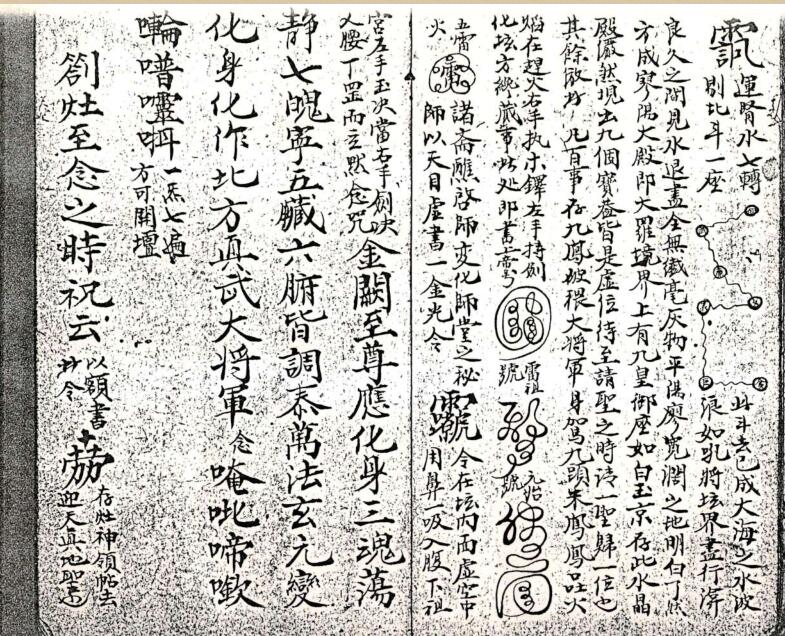 運腎水七轉
剔北斗一座
此斗去已成大海之水波
浪如吼將坛界盡行渰
良久之間見水退盡全無纖毫灰物平陽廖寬濶之地明白了然
方成寥陽大殿即大羅境界上有九皇御座如白玉京存此水晶
殿儼然現出九個寶臺皆是虛位待至請聖之時請一聖歸一位也
其餘散坛凡百事存九鳳破穢大將軍身駕九頭朱鳳鳳口吐火
焰在趕火右手执水鐸左手持劍
化坛方纔藏事此处即書三帝号
雷祖
號
元始
號
五雷
火
諸斋醮啓師变化師堂之秘
師以天目虛書一金光令
號令在坛內面虛空中
用鼻一吸入腹下祖
宮左手玉决當右手劍决
入腰丁罡而立默念咒
金闕至尊應化身三魂蕩
静七魄寧五臟六腑皆調泰萬法玄元變
化身化作北方真武大將軍
念
唵吡啼㗛
輪噃𠼞哵
一炁七遍
方可開壇
劄灶至念之時祝云
以額書
抄令
存灶神領帖去
迎天真地聖速